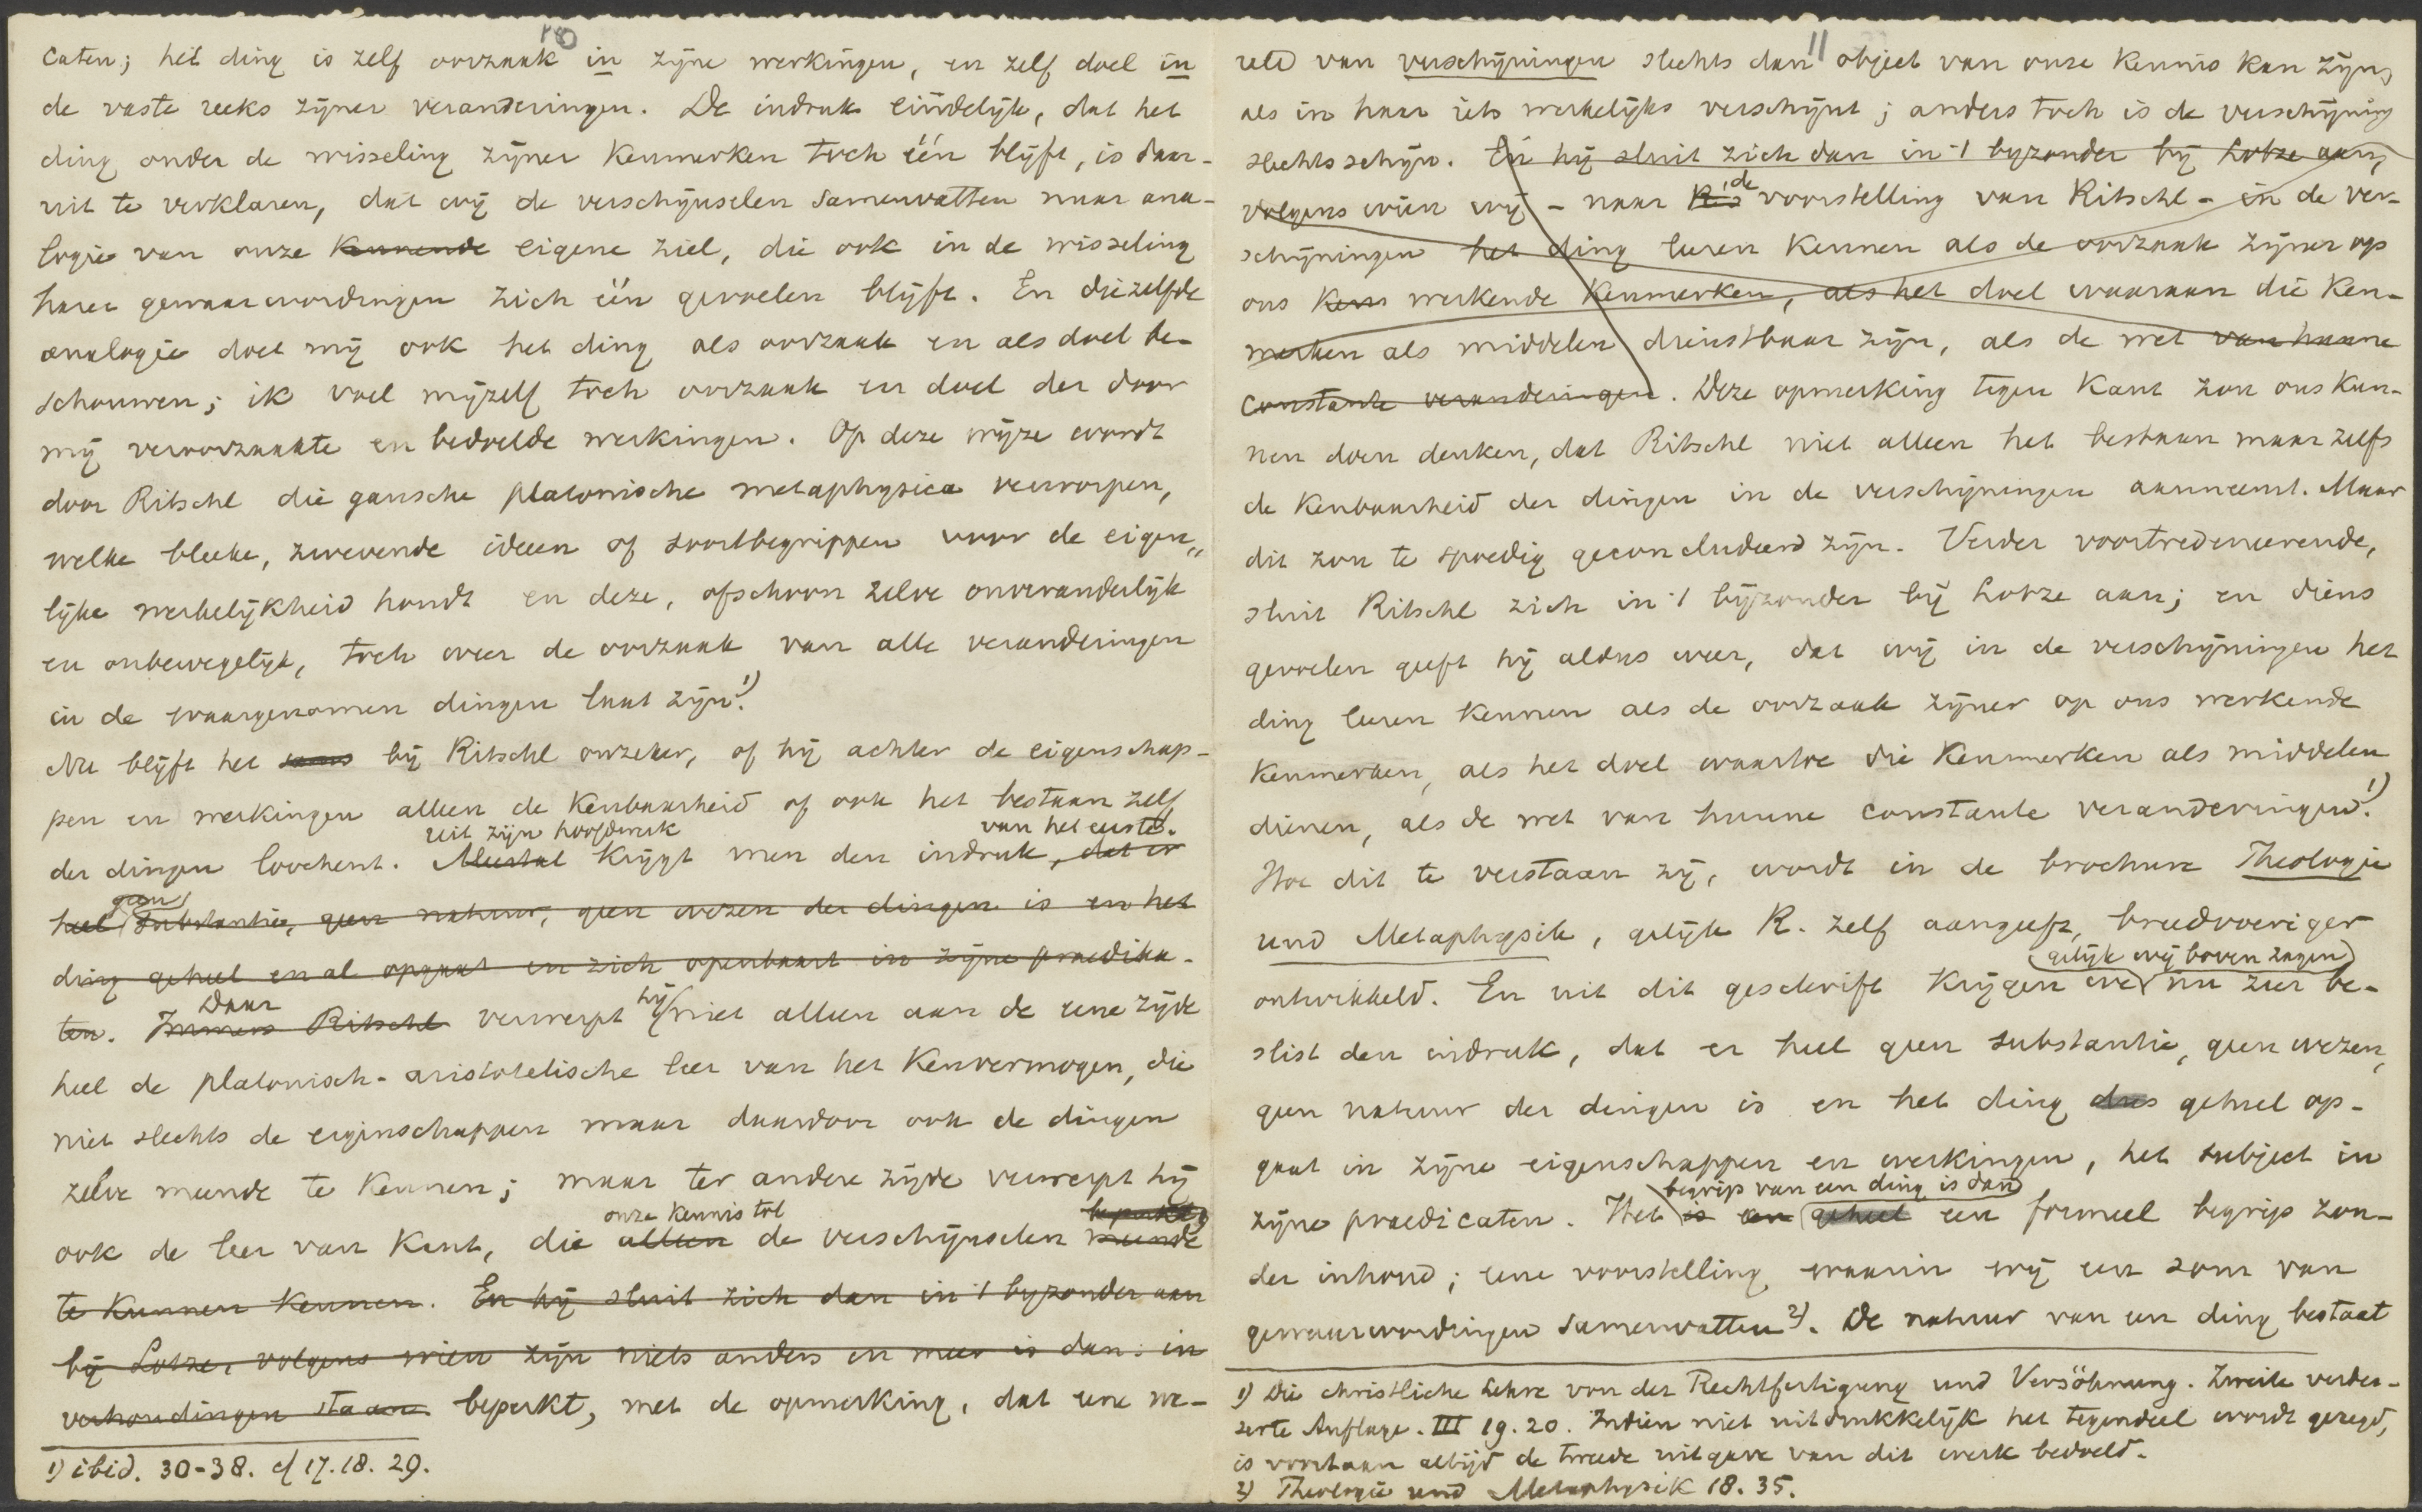 10
caten; het ding is zelf oorzaak in zijne werkingen, en zelf doel in
de vaste reeks zijner veranderingen. De indruk eindelijk, dat het
ding onder de wisseling zijner kenmerken toch één blijft, is daar-
uit te verklaren, dat wij de verschijnselen samenvatten naar ana-
logie van onze kennende eigene ziel, die ook in de wisseling
harer gewaarwordingen zich één gevoelen blijft. En diezelfde
analogie doet mij ook het ding als oorzaak en als doel be-
schouwen; ik voel mijzelf toch oorzaak en doel der door
mij veroorzaakte en bedoelde werkingen. Op deze wijze wordt
door Ritschl die gansche platonische metaphysica verworpen,
welke bleeke, zwevende ideen of soortbegrippen voor de eigen„
lijke werkelijkheid houdt en deze, ofschoon zelve onveranderlijk
en onbewegelijk, toch weer de oorzaak van alle veranderingen
in de waargenomen dingen laat zijn.1)
Nu blijft het soms bij Ritschl onzeker, of hij achter de eigenschap-
pen en werkingen alleen de kenbaarheid of ook het bestaan zelf
uit zijn hoofdwerk van het eerste.
der dingen loochent. Meestal krijgt men den indruk, dat er
geen
heel substantie, geen natuur, geen wezen der dingen is en het
ding geheel en al opgaat en zich openbaart in zijne praedika-
Daar hij
ten. Immers Ritschl verwerpt niet alleen aan de eene zijde
heel de platonisch-aristotelische leer van het kenvermogen, die
niet slechts de eigenschappen maar daardoor ook de dingen
zelve meende te kennen; maar ter andere zijde verwerpt hij
onze kennis tot beperkte
ook de leer van Kant, die alleen de verschijnselen meende
te kunnen kennen. En hij sluit zich dan in 't byzonder aan
bij Lotze, volgens wien zijn niets anders en meer is dan: in
verhoudingen staan. beperkt, met de opmerking, dat eene we-
1) ibid. 30-38. cf 17. 18. 29.
11
reld van verschijningen slechts dan object van onze kennis kan zijn,
als in haar iets werkelijks verschijnt; anders toch is de verschijning
slechts schijn. En hij sluit zich dan in 't byzonder bij Lotze aan,
de
volgens wien wij - naar voorstelling van Ritschl - in de ver-
schijningen het ding leeren kennen als de oorzaak zijner op
ons kens werkende kenmerken, als het doel waaraan die ken-
merken als middelen dienstbaar zijn, als de wet van haare
constante veranderingen. Deze opmerking tegen Kant zou ons kun-
nen doen denken, dat Ritschl niet alleen het bestaan maar zelfs
de kenbaarheid der dingen in de verschijningen aanneemt. Maar
dit zou te spoedig geconcludeerd zijn. Verder voortredeneerende,
sluit Ritschl zich in 't bijzonder bij Lotze aan; en diens
gevoelen geeft hij aldus weer, dat wij in de verschijningen het
ding leeren kennen als de oorzaak zijner op ons werkende
kenmerken, als het doel waartoe die kenmerken als middelen
dienen, als de wet van hunne constante veranderingen.1)
Hoe dit te verstaan zij, wordt in de brochure Theologie
und Metaphysik, gelijk R. zelf aangeeft, breedvoeriger
gelijk wij boven zagen
ontwikkeld. En uit dit geschrift krijgen we nu zeer be-
slist den indruk, dat er heel geen substantie, geen wezen,
geen natuur der dingen is en het ding dus geheel op-
gaat in zijne eigenschappen en werkingen, het subject in
begrip van een ding is dan
zijne praedicaten. Het is een geheel een formeel begrip zon-
der inhoud; eene voorstelling waarin wij een som van
gewaarwordingen samenvatten2). De natuur van een ding bestaat
1) Die christliche Lehre von der Rechtfertigung und Versöhnung. Zweite verbes-
serte Auflage. III 19. 20. Indien niet uitdrukkelijk het tegendeel wordt gezegd,
is voortaan altijd de tweede uitgave van dit werk bedoeld.
2) Theologie und Metaphysik 18. 35.